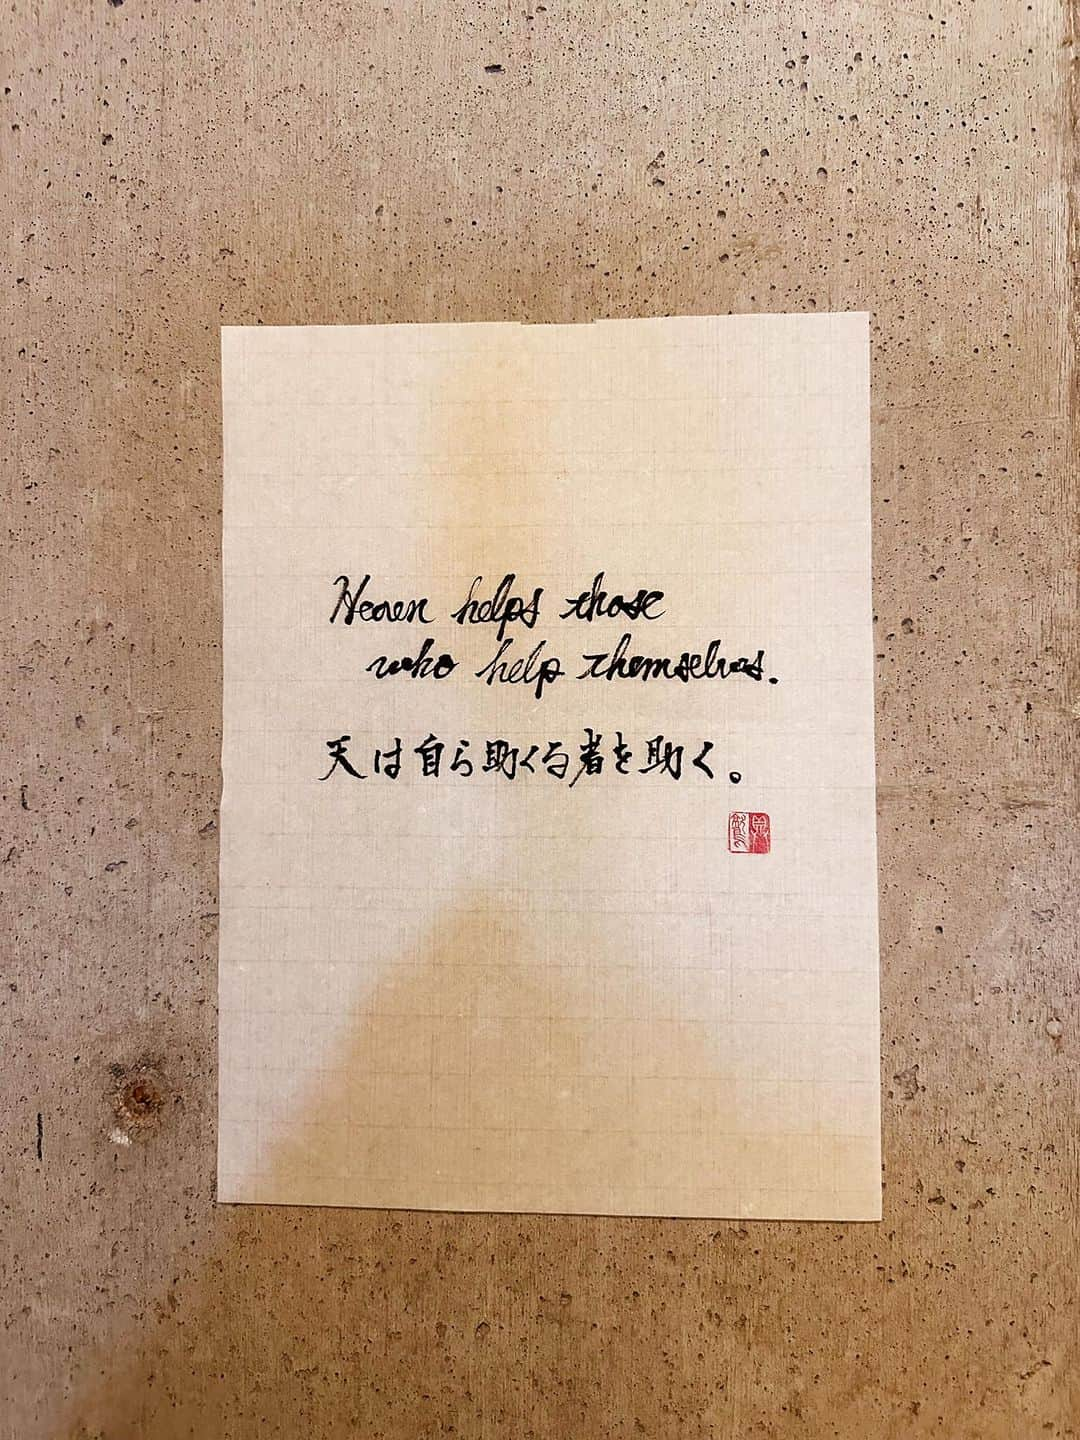 Heaven helps those
who help themselves.
天は自ら助くる者を助く。